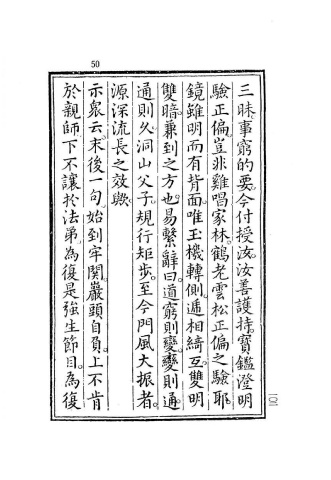 50
三昧事窮的要今付授汝汝善護持寶鑑澄明
驗正偏豈非雞唱家林鶴老雲松正偏之驗耶
鏡雖明而有背面唯玉機轉側遞相綺互雙明
雙暗兼到之方也易繫辭曰道窮則變變則通
通則久洞山父子規行矩步至今門風大振者
源深流長之效歟
示眾云末後一句始到牢關巖頭自負上不肯
於親師下不讓於法弟為復是強生節目為復
101